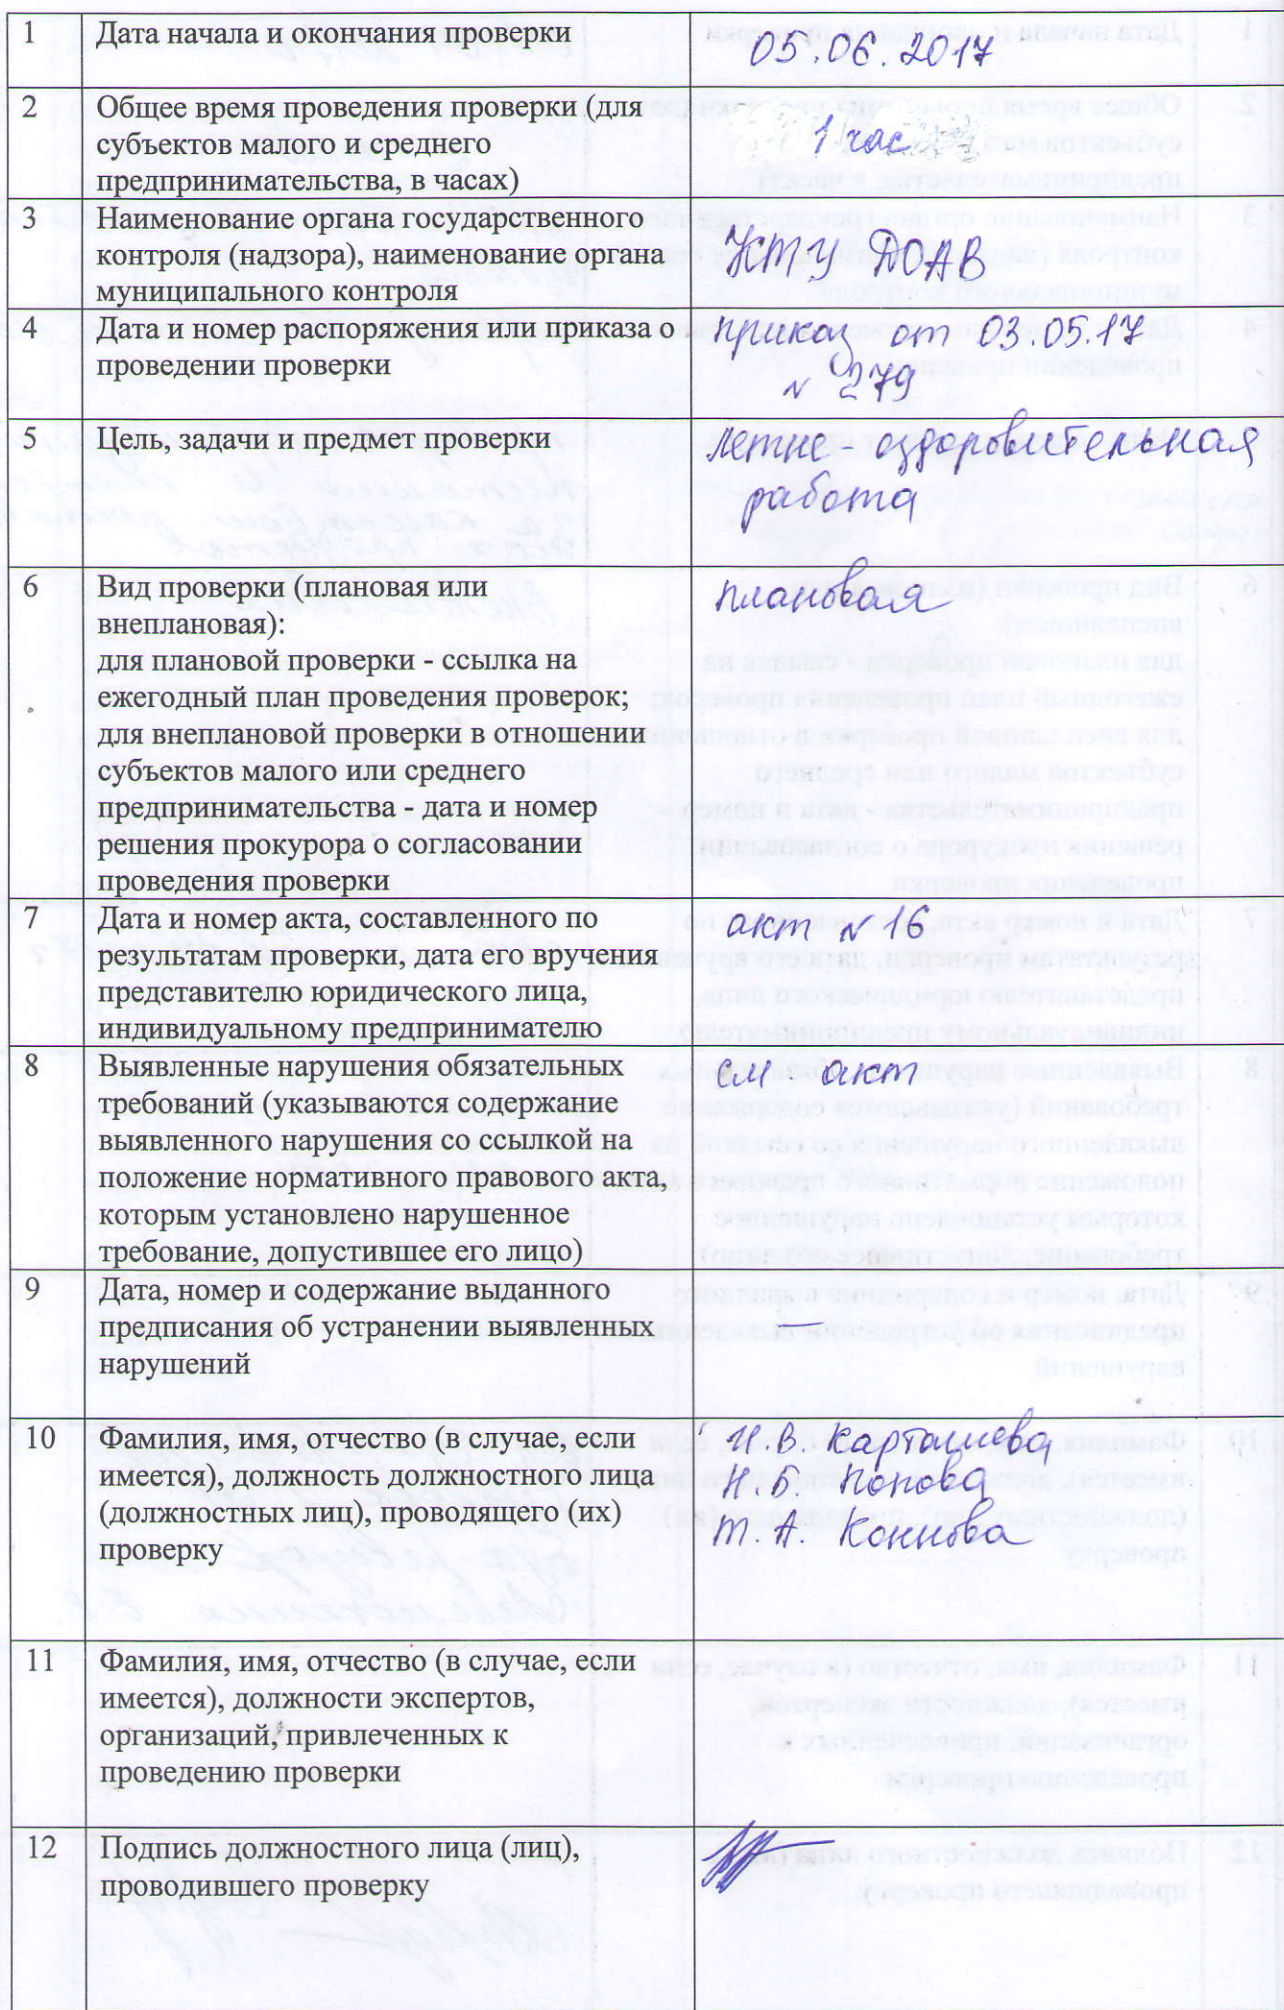 1 Дата начала и окончания проверки 05.06.2017
2 Общее время проведения проверки (для
субъектов малого и среднего
предпринимательства, в часах)
1 час
3 Наименование органа государственного
контроля (надзора), наименование органа
муниципального контроля
ДОАВ
4 Дата и номер распоряжения или приказа о
проведении проверки
приказ от 03.05.17
№ 279
5 Цель, задачи и предмет проверки
летне-оздоровительная
работа
6 Вид проверки (плановая или
внеплановая):
для плановой проверки - ссылка на
ежегодный план проведения проверок;
для внеплановой проверки в отношении
субъектов малого или среднего
предпринимательства - дата и номер
решения прокурора о согласовании
проведения проверки
плановая
7 Дата и номер акта, составленного по
результатам проверки, дата его вручения
представителю юридического лица,
индивидуальному предпринимателю
акт № 16
8 Выявленные нарушения обязательных
требований (указываются содержание
выявленного нарушения со ссылкой на
положение нормативного правового акта,
которым установлено нарушенное
требование, допустившее его лицо)
см. акт
9 Дата, номер и содержание выданного
предписания об устранении выявленных
нарушений
—
10 Фамилия, имя, отчество (в случае, если
имеется), должность должностного лица
(должностных лиц), проводящего (их)
проверку
И.В. Карташева
Н.Б. Попова
Т.А.
11 Фамилия, имя, отчество (в случае, если
имеется), должности экспертов,
организаций, привлеченных к
проведению проверки
12 Подпись должностного лица (лиц),
проводившего проверку